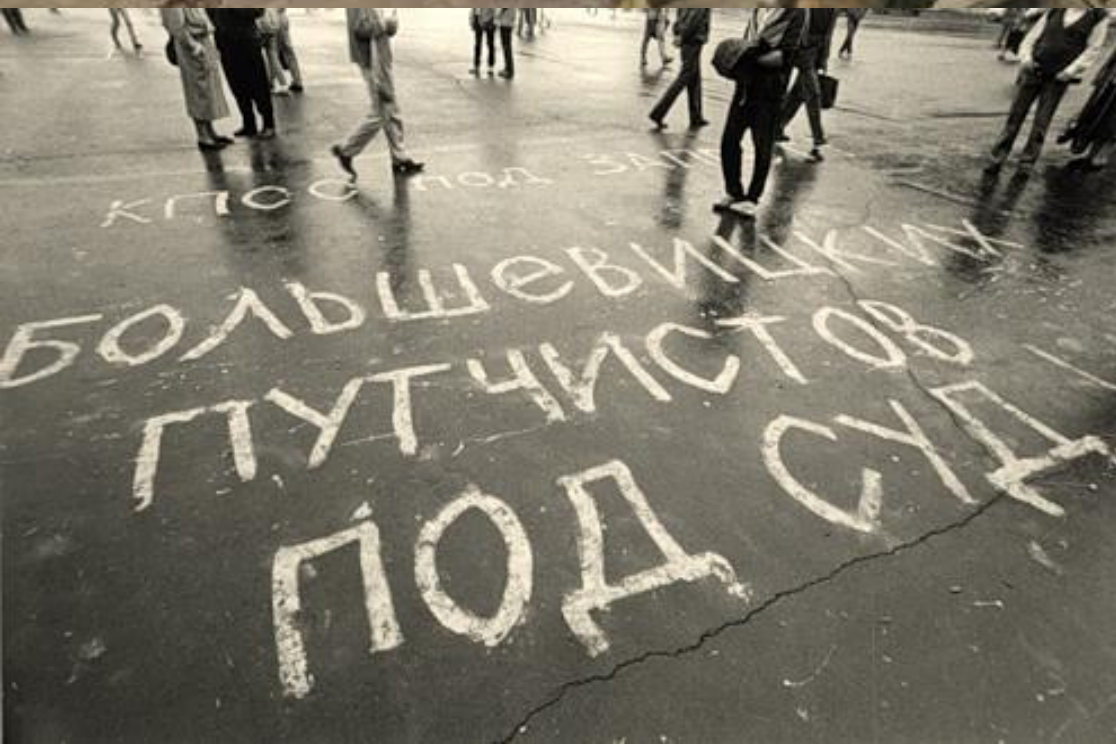 КПСС ПОД
БОЛЬШЕВИЦКИХ
ПУТЧИСТОВ
ПОД СУД!